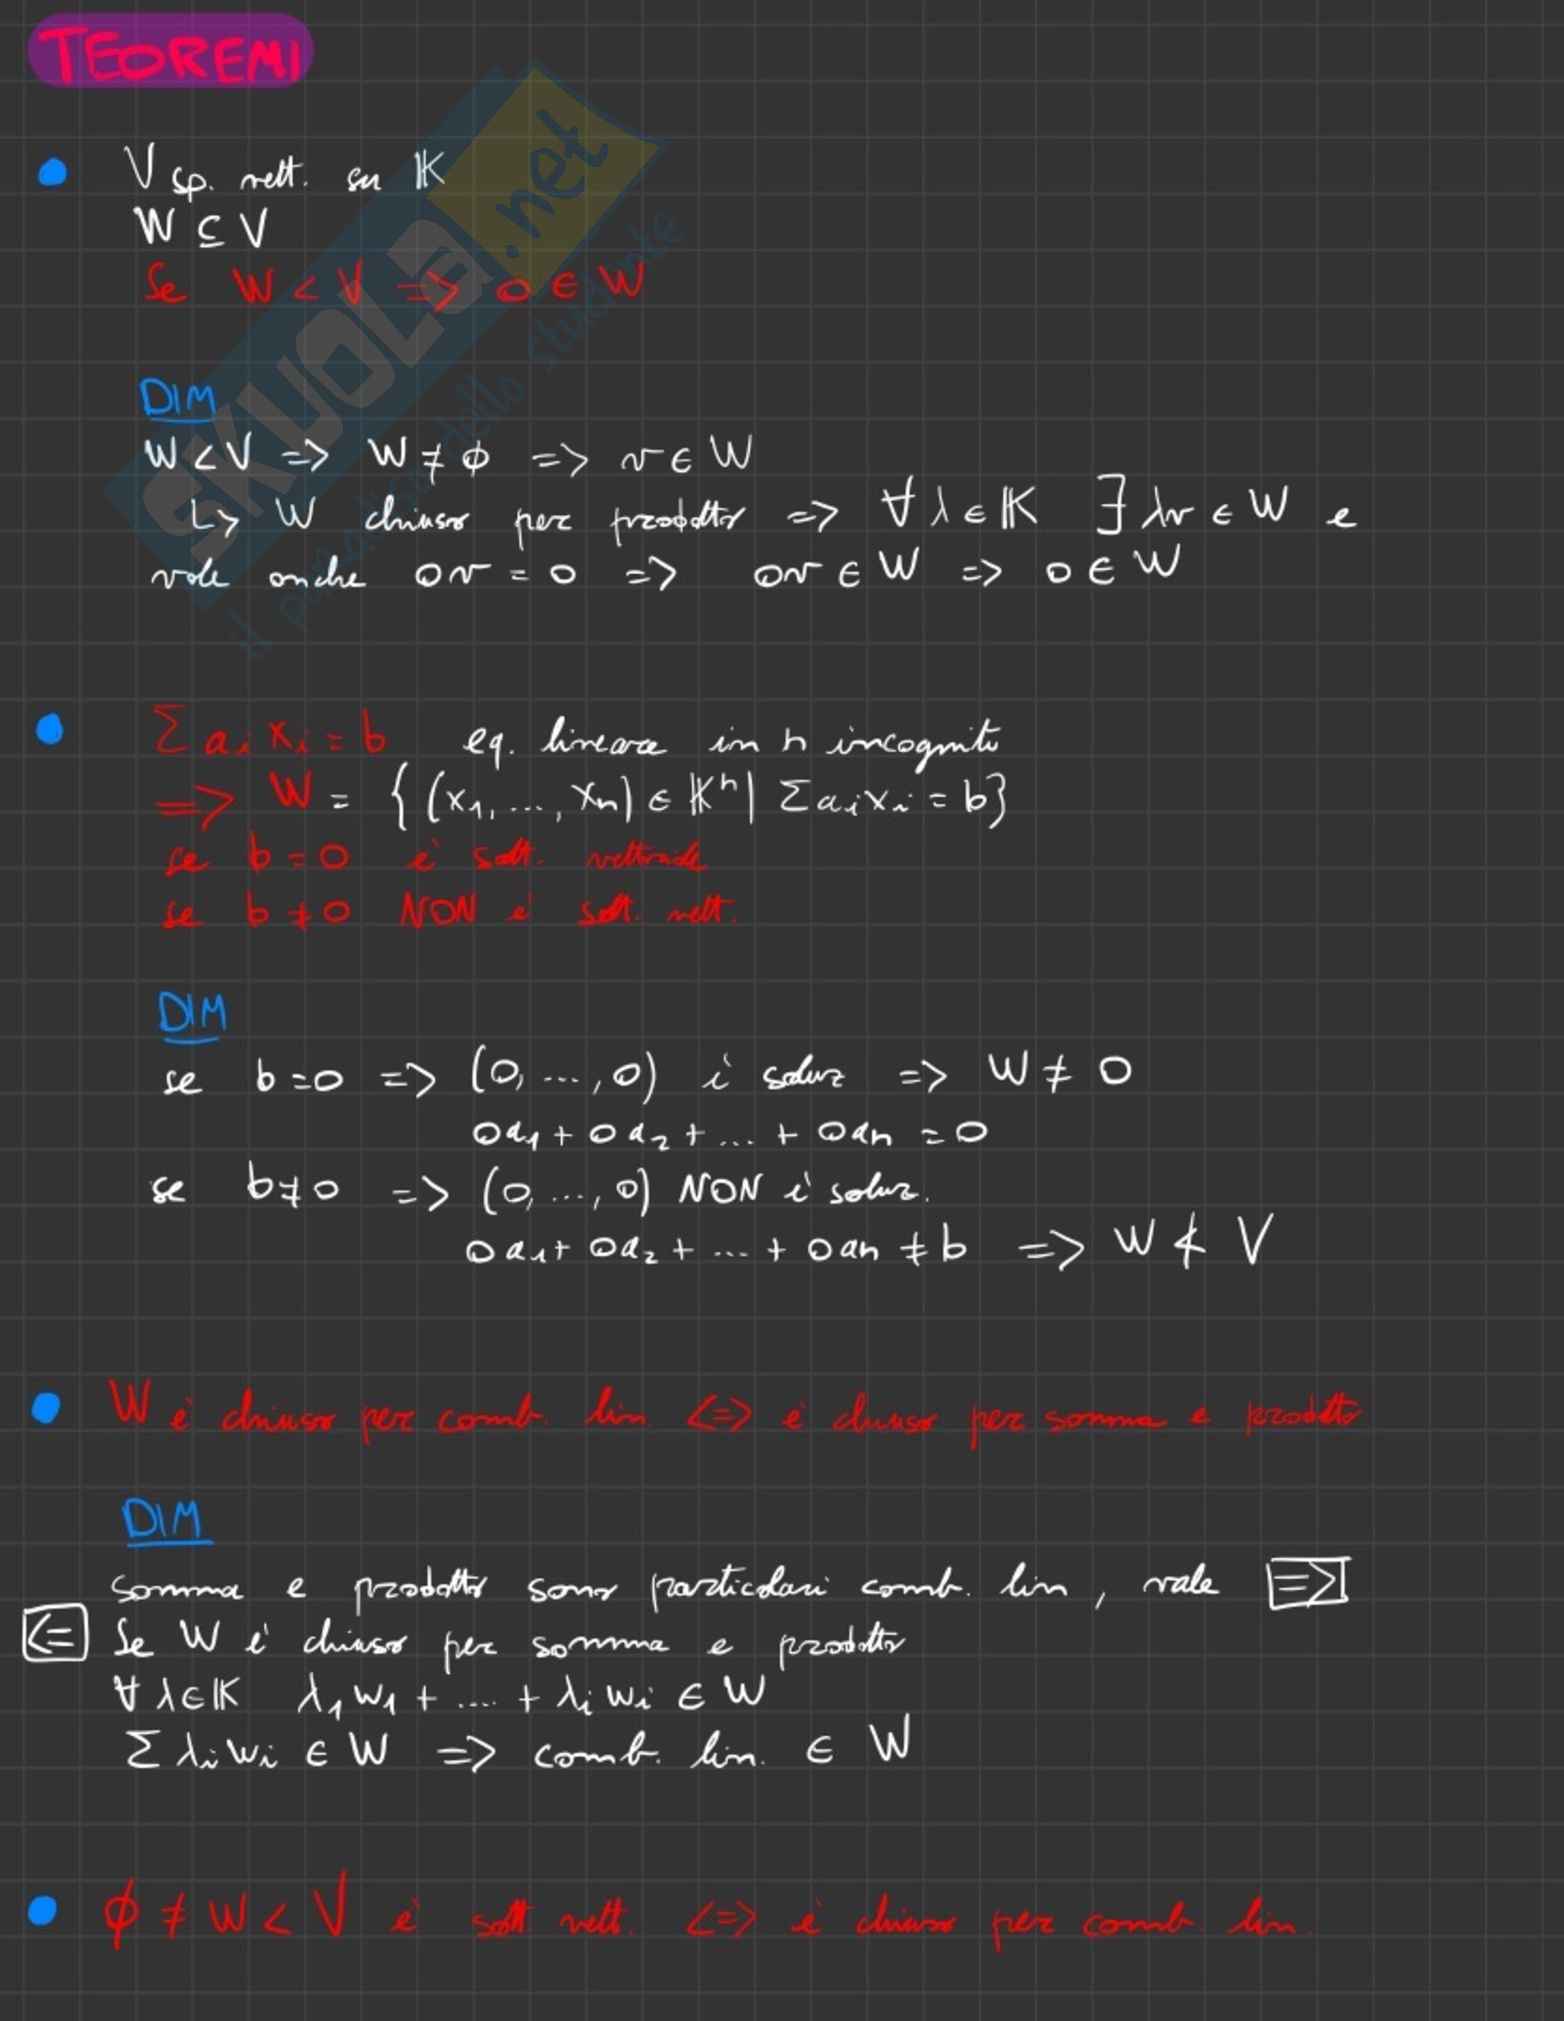 TEOREMI
V sp. vett. su 𝕂
W ⊆ V
Se W < V => 0 ∈ W
DIM
W < V => W ≠ ϕ => v ∈ W
↳ W chiuso per prodotto => ∀ λ ∈ 𝕂 ∃ λv ∈ W e
vale anche 0v = 0 => 0v ∈ W => 0 ∈ W
Σ aᵢ xᵢ = b eq. lineare in n incognite
=> W = { (x₁, ..., xₙ) ∈ 𝕂ⁿ | Σ aᵢ xᵢ = b}
se b = 0 è sott. vettoriale
se b ≠ 0 NON è sott. vett.
DIM
se b = 0 => (0, ..., 0) è soluz => W ≠ 0
0a₁ + 0a₂ + ... + 0aₙ = 0
se b ≠ 0 => (0, ..., 0) NON è soluz.
0a₁ + 0a₂ + ... + 0aₙ ≠ b => W ≮ V
W è chiuso per comb. lin. <=> è chiuso per somma e prodotto
DIM
somma e prodotto sono particolari comb. lin, vale =>
<= Se W è chiuso per somma e prodotto
∀ λ ∈ 𝕂 λ₁w₁ + .... + λᵢwᵢ ∈ W
Σ λᵢwᵢ ∈ W => comb. lin. ∈ W
ϕ ≠ W < V è sott. vett. <=> è chiuso per comb. lin.
SKUOLA.net
il paradiso dello studente